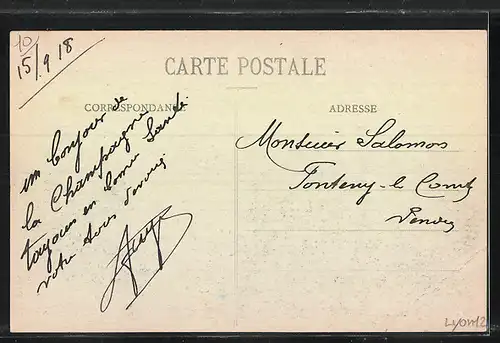 10
15/9 18
CARTE POSTALE
CORRESPONDANCE
ADRESSE
un bonjour de
la Champagne
toujours en bonne Santé
votre
Monsieur Salomos
Fonteny-le Comte
Vendée
Lyon 12